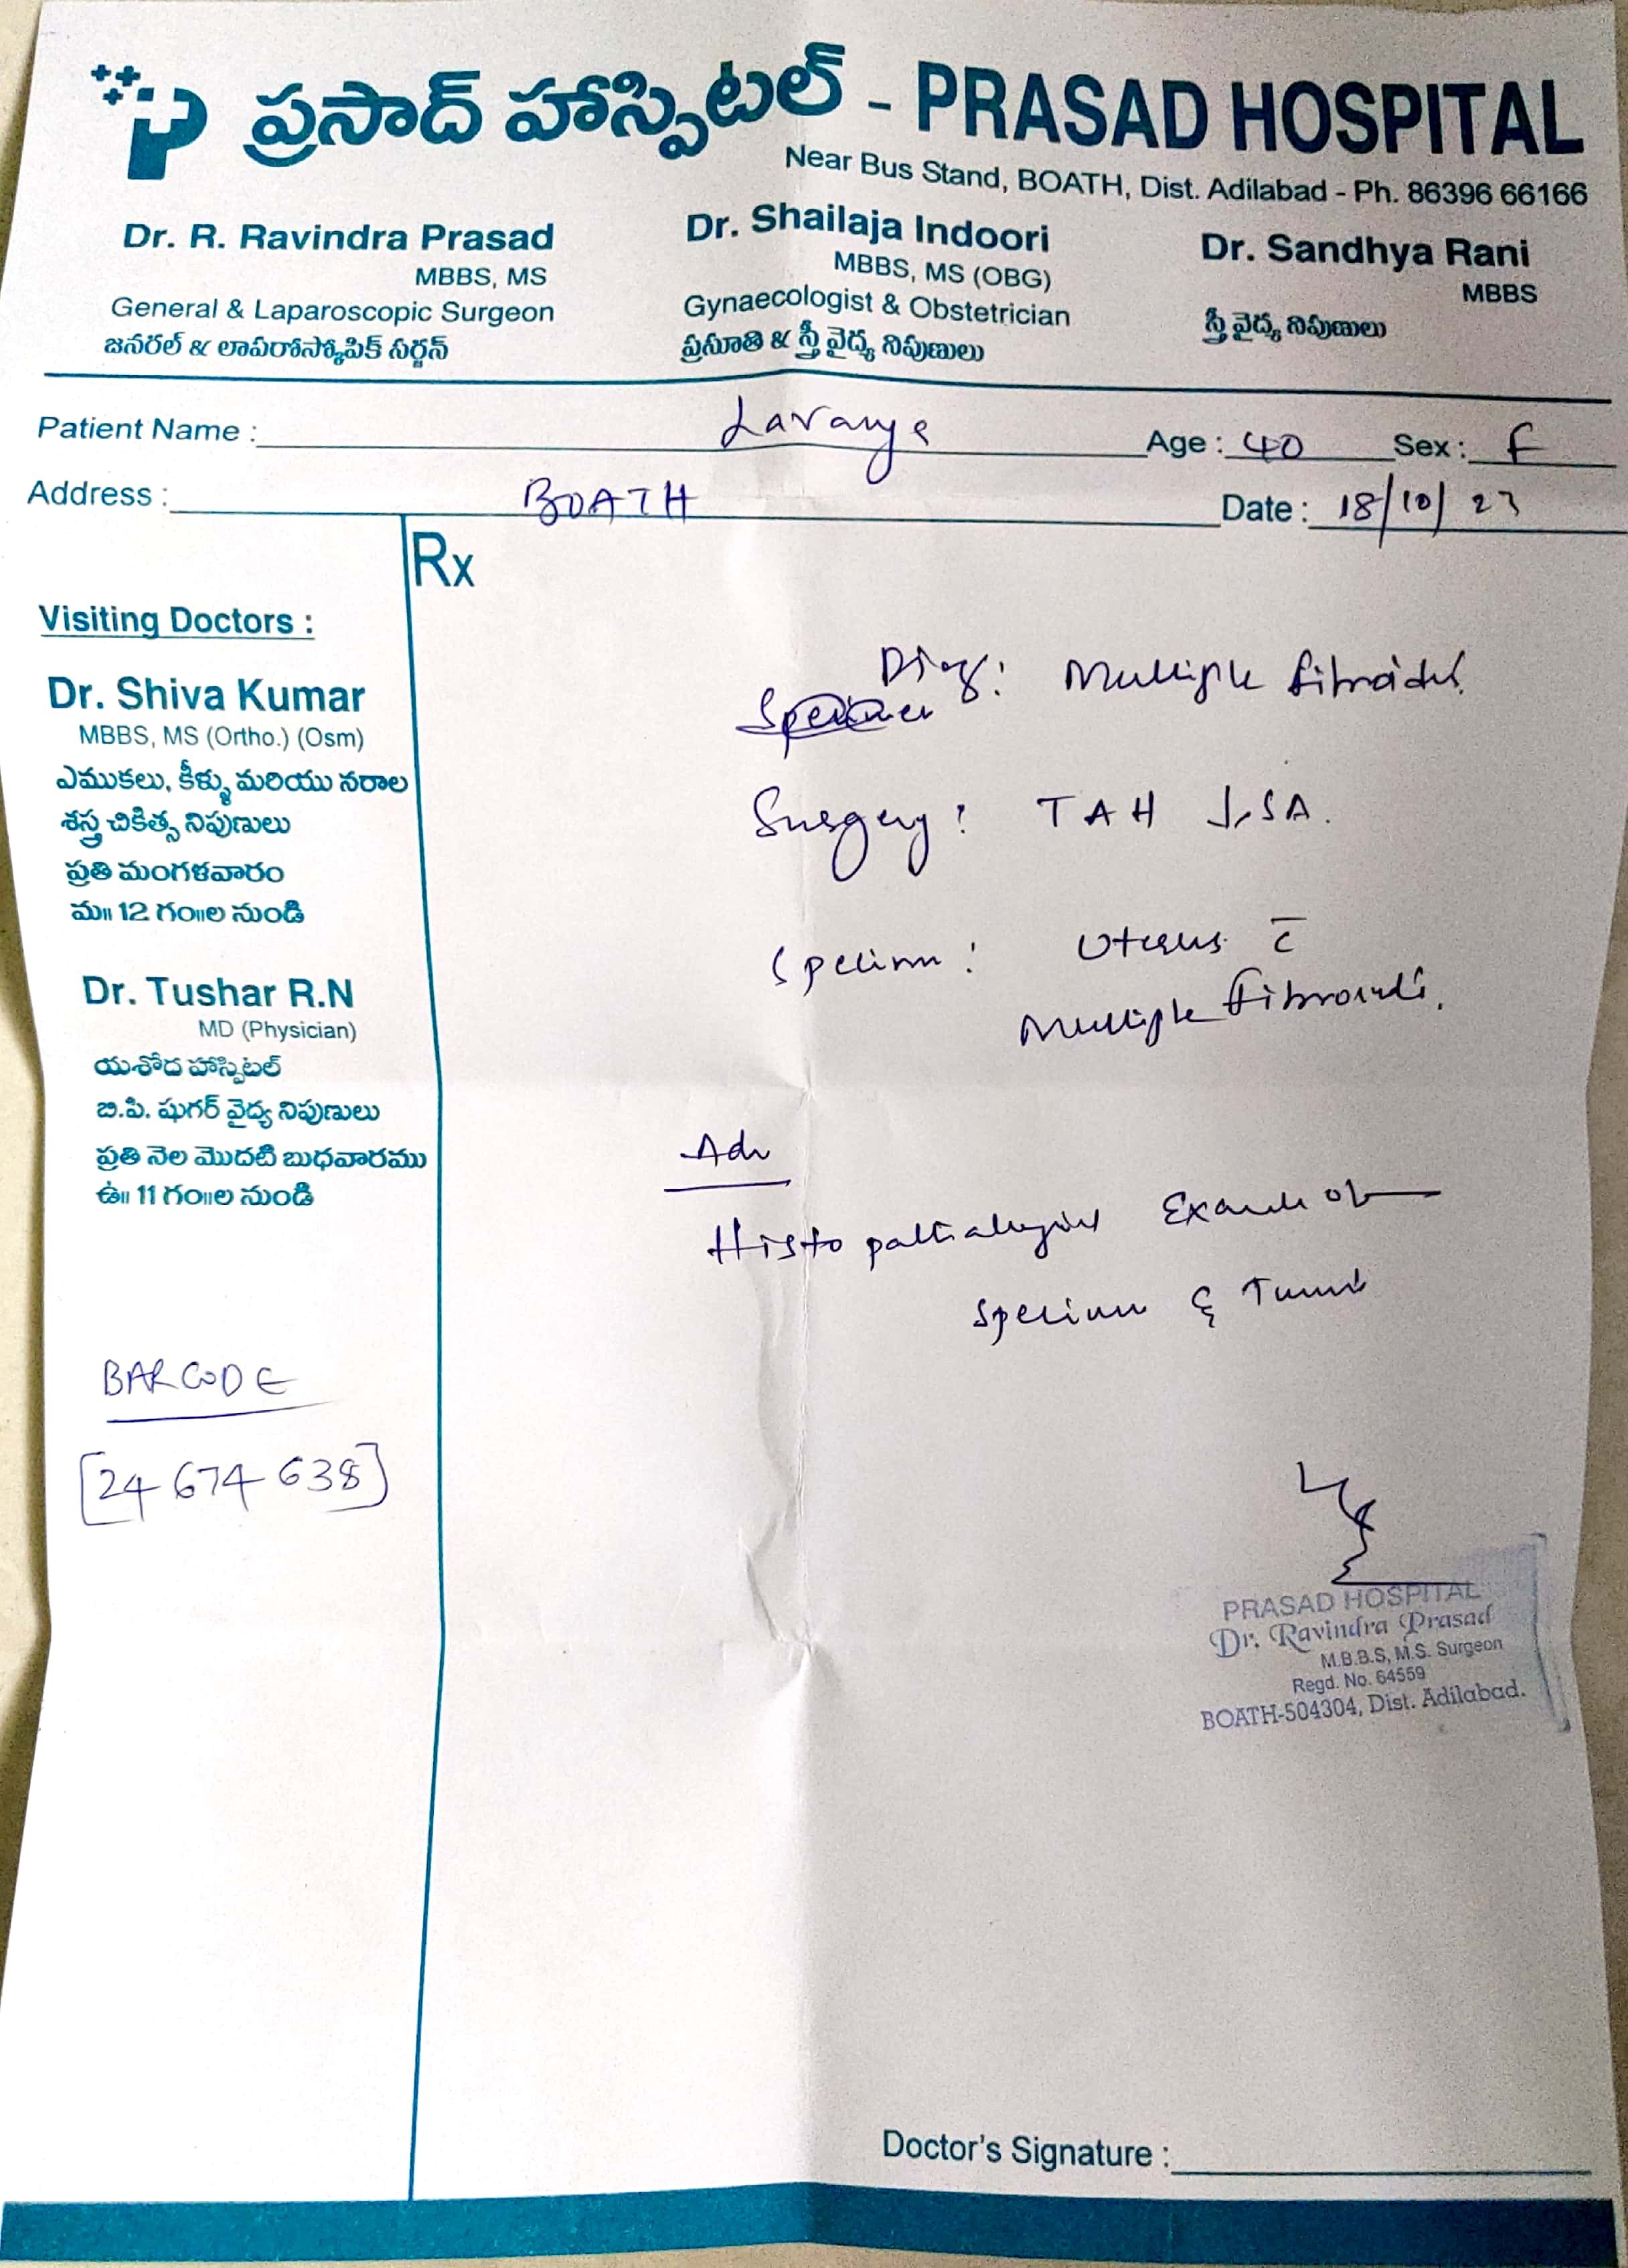 ప్రసాద్ హాస్పిటల్ - PRASAD HOSPITAL
Near Bus Stand, BOATH, Dist. Adilabad - Ph. 86396 66166
Dr. R. Ravindra Prasad
MBBS, MS
General & Laparoscopic Surgeon
జనరల్ & లాపరోస్కోపిక్ సర్జన్
Dr. Shailaja Indoori
MBBS, MS (OBG)
Gynaecologist & Obstetrician
ప్రసూతి & స్త్రీ వైద్య నిపుణులు
Dr. Sandhya Rani
MBBS
స్త్రీ వైద్య నిపుణులు
Patient Name : Lavanya Age : 40 Sex : F
Address : BOATH Date : 18/10/23
Rx
Visiting Doctors :
Dr. Shiva Kumar
MBBS, MS (Ortho.) (Osm)
ఎముకలు, కీళ్ళు మరియు నరాల
శస్త్ర చికిత్స నిపుణులు
ప్రతి మంగళవారం
మ॥ 12 గం॥ల నుండి
Dr. Tushar R.N
MD (Physician)
యశోద హాస్పిటల్
బి.పి. షుగర్ వైద్య నిపుణులు
ప్రతి నెల మొదటి బుధవారము
ఉ॥ 11 గం॥ల నుండి
BARCODE
[24674638]
Diag: Multiple fibroids.
Surgery: TAH SA.
Specimen: Uterus c̄
Multiple Fibroids.
Adv
Histopathological Exam of
Specimen &
PRASAD HOSPITAL
Dr. Ravindra Prasad
M.B.B.S, M.S. Surgeon
Regd. No. 64559
BOATH-504304, Dist. Adilabad.
Doctor's Signature :